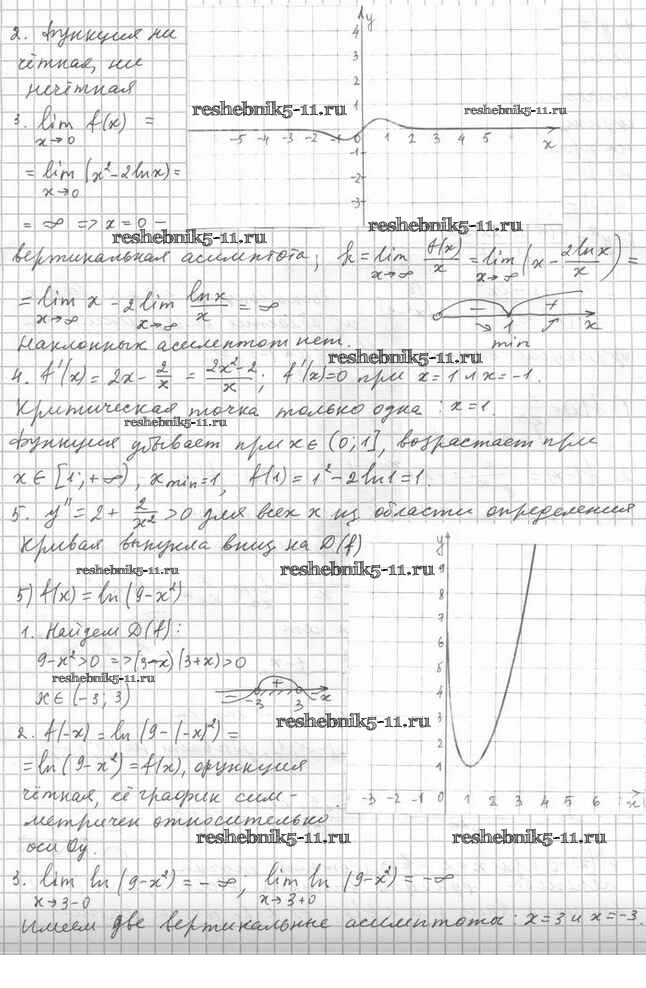 2. Функция ни
чётная, ни
нечётная
3. lim f(x) =
x→0
= lim (x² - 2lnx) =
x→0
= ∞ => x = 0 -
вертикальная асимптота; k = lim f(x)/x = lim (x - 2lnx/x) =
x→∞ x→∞
= lim x - 2 lim lnx/x = ∞
x→∞ x→∞
Наклонных асимптот нет.
4. f'(x) = 2x - 2/x = (2x²-2)/x ; f'(x)=0 при x = 1 и x = -1.
Критическая точка только одна : x = 1.
Функция убывает при x ∈ (0; 1], возрастает при
x ∈ [1; +∞), x min = 1, f(1) = 1² - 2ln1 = 1.
5. y'' = 2 + 2/x² > 0 для всех x из области определения
Кривая выпукла вниз на D(f)
5) f(x) = ln(9-x²)
1. Найдем D(f):
9-x² > 0 => (3-x)(3+x) > 0
x ∈ (-3; 3)
2. f(-x) = ln(9-(-x)²) =
= ln(9-x²) = f(x), функция
чётная, её график сим-
метричен относительно
оси Oy.
3. lim ln(9-x²) = -∞, lim ln(9-x²) = -∞
x→3-0 x→3+0
Имеем две вертикальные асимптоты : x = 3 и x = -3.
y
4
3
2
1
-5 -4 -3 -2 -1 0 1 2 3 4 5 x
-1
-2
-3
- +
1 x
min
- + -
-3 3 x
y
9
8
7
6
5
4
3
2
1
-3 -2 -1 0 1 2 3 4 5 6 x
reshebnik5-11.ru
reshebnik5-11.ru
reshebnik5-11.ru
reshebnik5-11.ru
reshebnik5-11.ru
reshebnik5-11.ru
reshebnik5-11.ru
reshebnik5-11.ru
reshebnik5-11.ru
reshebnik5-11.ru
reshebnik5-11.ru
reshebnik5-11.ru